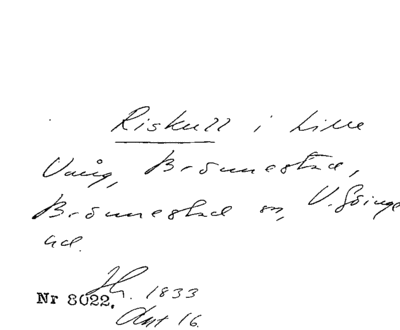 Riskull i Lilla
Vång, Brönnestad,
Brönnestad sn, V. Göinge
hd.
Jh. 1833
Nr 8022.
Akt 16.